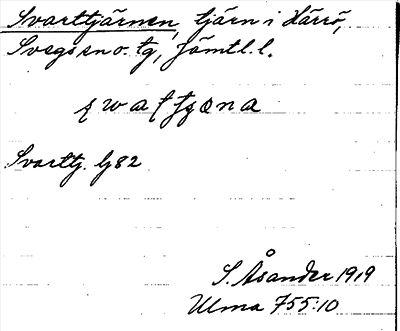 Svarttjärnen, tjärn i Härrö,
Svegs sn o. tg, Jämtl. l.
Svarttj. bj 82
S. Åsander 1919
Ulma 755:10